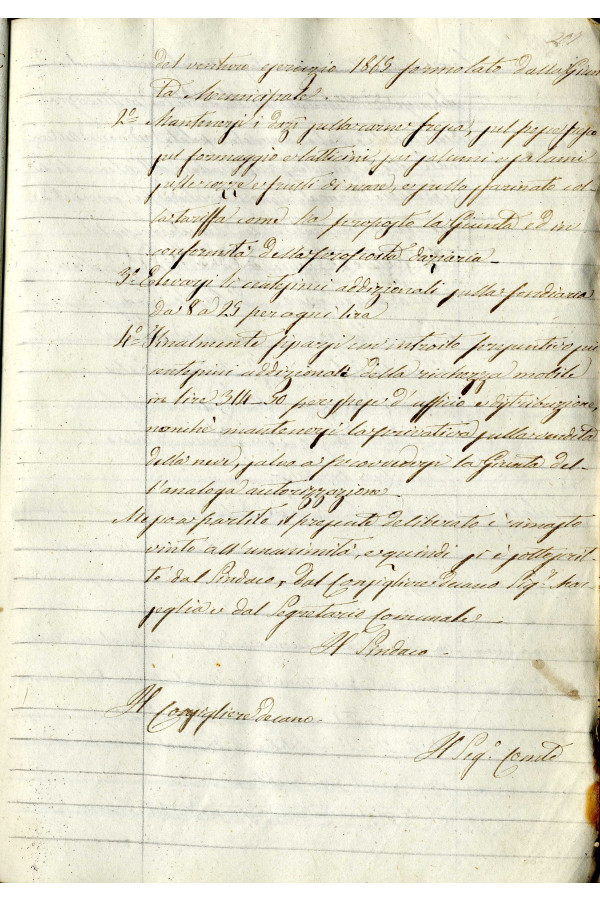 del venturo esercizio 1869 formolato dalla Giun
ta Municipale.
2.° Mantenersi i dazî sulla carne fresca, sul pesce fresco
sul formaggio e latticini, sui salumi e salami
sulle cozze e frutti di mare, e sulla farinate col-
la tariffa come ha proposto la Giunta ed in
conformità della proposta daziaria_
3.° Elevarsi li centesimi addizionali sulla fondiaria
da 8 a 25 per ogni lira
4.° Finalmente fissarsi un introito presuntivo pei
centesimi addizionali della ricchezza mobile
in lire 314-50 per spese d'ufficio e distribuzione,
nonchè mantenersi la privativa sulla vendita
della neve, salvo a provvedersi la Giunta del-
l'analoga autorizzazione_
Messo a partito il presente deliberato è rimasto
vinto all'unanimità, e quindi si è sottoscrit-
to dal Sindaco, dal Consigliere decano Sig.r
e dal Segretario Comunale.
Il Sindaco.
Il Consigliere decano.
Il Seg.° Com.le